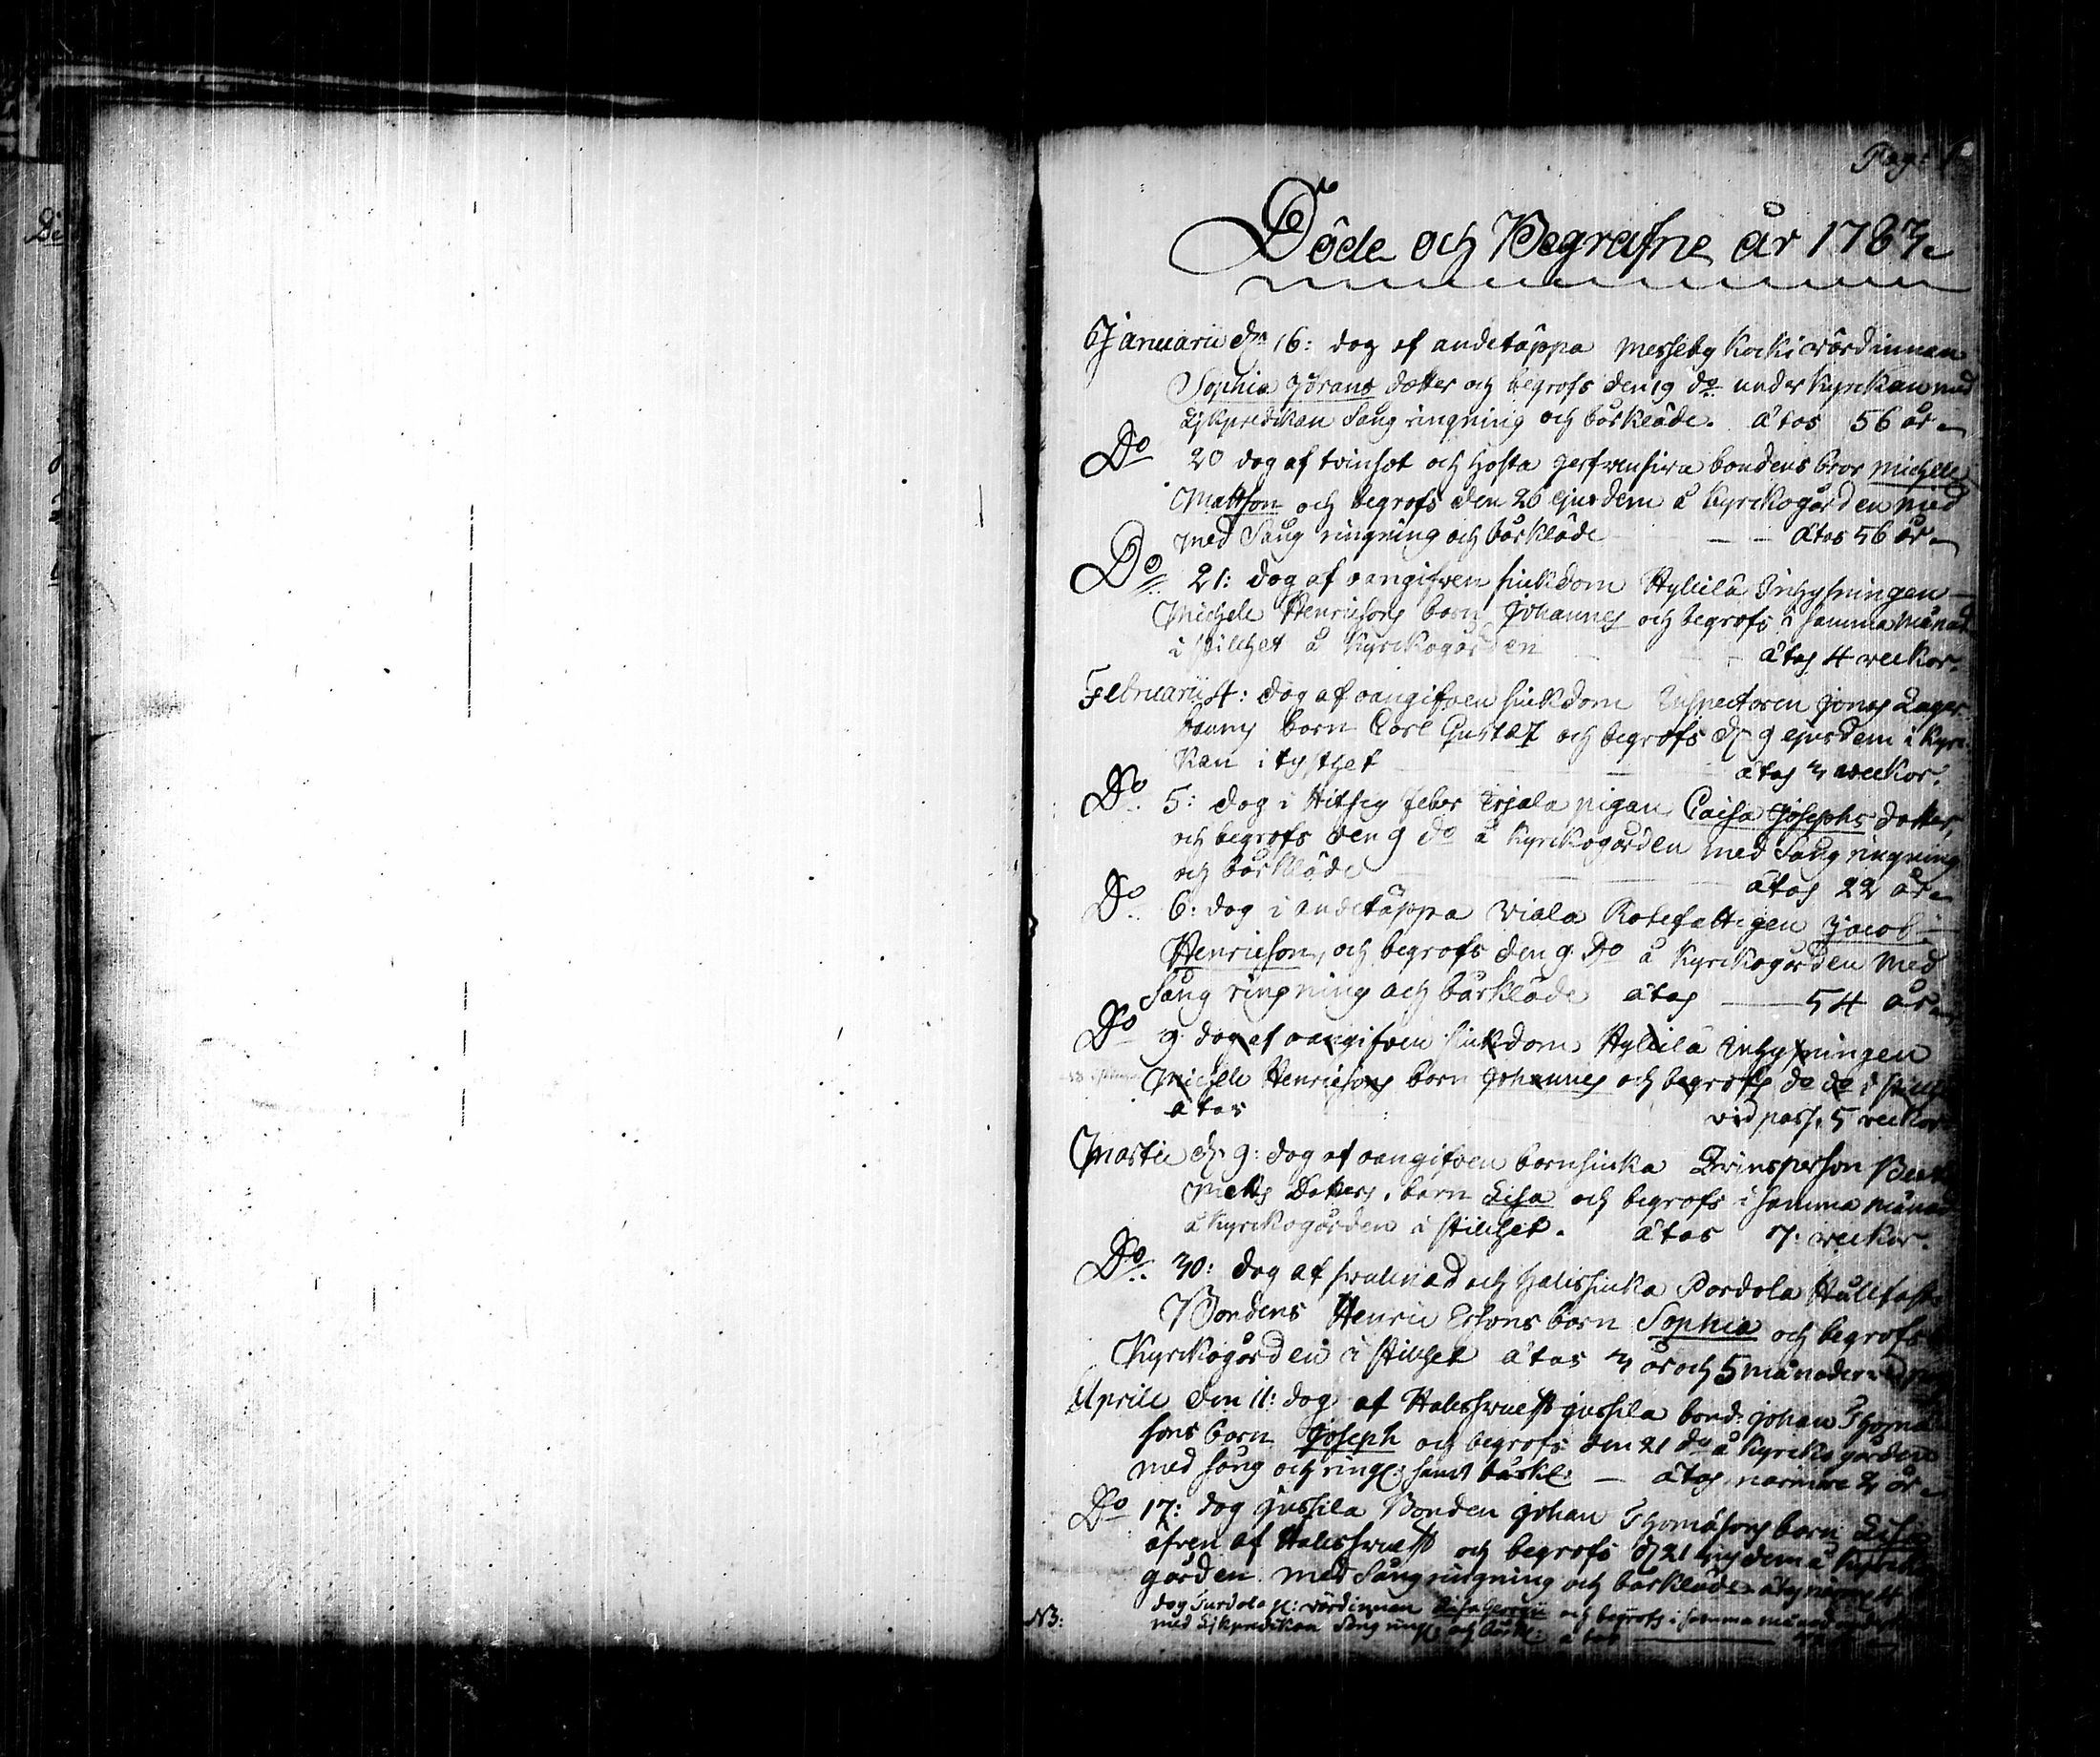 Pag: 1
Döde och Begrafne år 1783.
Januarii d. 16: dag af andetäppa Messeby Kocki wärdinnan
Sophia Jörans dotter och begrofs den 19 do under kyrckan med
Likpredikan Sång ringning och bårkläde. åtos 56 år.
Do 20 dag af tvinsot och hosta bondens bror Michell
Mattson och begrofs den 26 ejusdem å kyrckogården med
med Sång ringning och bårkläde - - - åtos 56 år.
Do 21: dag af oangifven siukdom Hylielä Inhysningen
Michels Henricsons barn Johannes och begrofs i samma månad
i stillhet å kyrckogården - - åtos 4 veckor.
Februarii 4: dag af oangifven siukdom Inspectoren Jonas Lager-
boms barn Carl Gustaf och begrofs d. 9 ejusdem i kyrc-
kan i tysthet åtos 3 veckor.
Do 5: dag i Hitsig feber Erjala pigan Caisa Josephs dotter,
och begrofs den 9 do å kyrckogården med Sång ringning
och bårkläde åtos 22 år.
Do 6: dag i andetäppa Viala Rotefattigen Jacob
Henricson, och begrofs den 9 Do å kyrckogården med
Sång ringning och bårkläde åtos 54 år.
Do 9 dag af oangifven siukdom Hylielä Inhysningen
Michels Henricsons barn Johannes och begrofs do do i
åtos vid pass 5 veckor
Martii d. 9: dag af oangifven barnsiuka Qvinsperson
Matts Dotters barn Lisa och begrofs i samma månad
å kyrckogården i stillhet. åtos 7: veckor.
Do 30: dag af svulnad och halssiuka Pordola
Bondens Henric Ersons barn Sophia och begrofs
Kyrckogården i stillhet åtos 3 år och 5 månader
Aprill den 11: dag af Halsswulst Jussila bond: Johan Thoma-
sons barn Joseph och begrofs den 21 do å kyrcko gården
med sång och ring: samt bårkl: - åtos närmre 2 år.
Do 17: dag Jussila Bonden Johan Thomäsons barn Lisa
äfven af Halsswulst och begrofs d 21 ejusdem å kyrcko
gården med Sång ringning och bårkläde åtos närmre 4
NB: dag Turdola wärdinnan Lisa och begrofs i samma månad
med Likpredikan Sång ring och bårkl: åtos